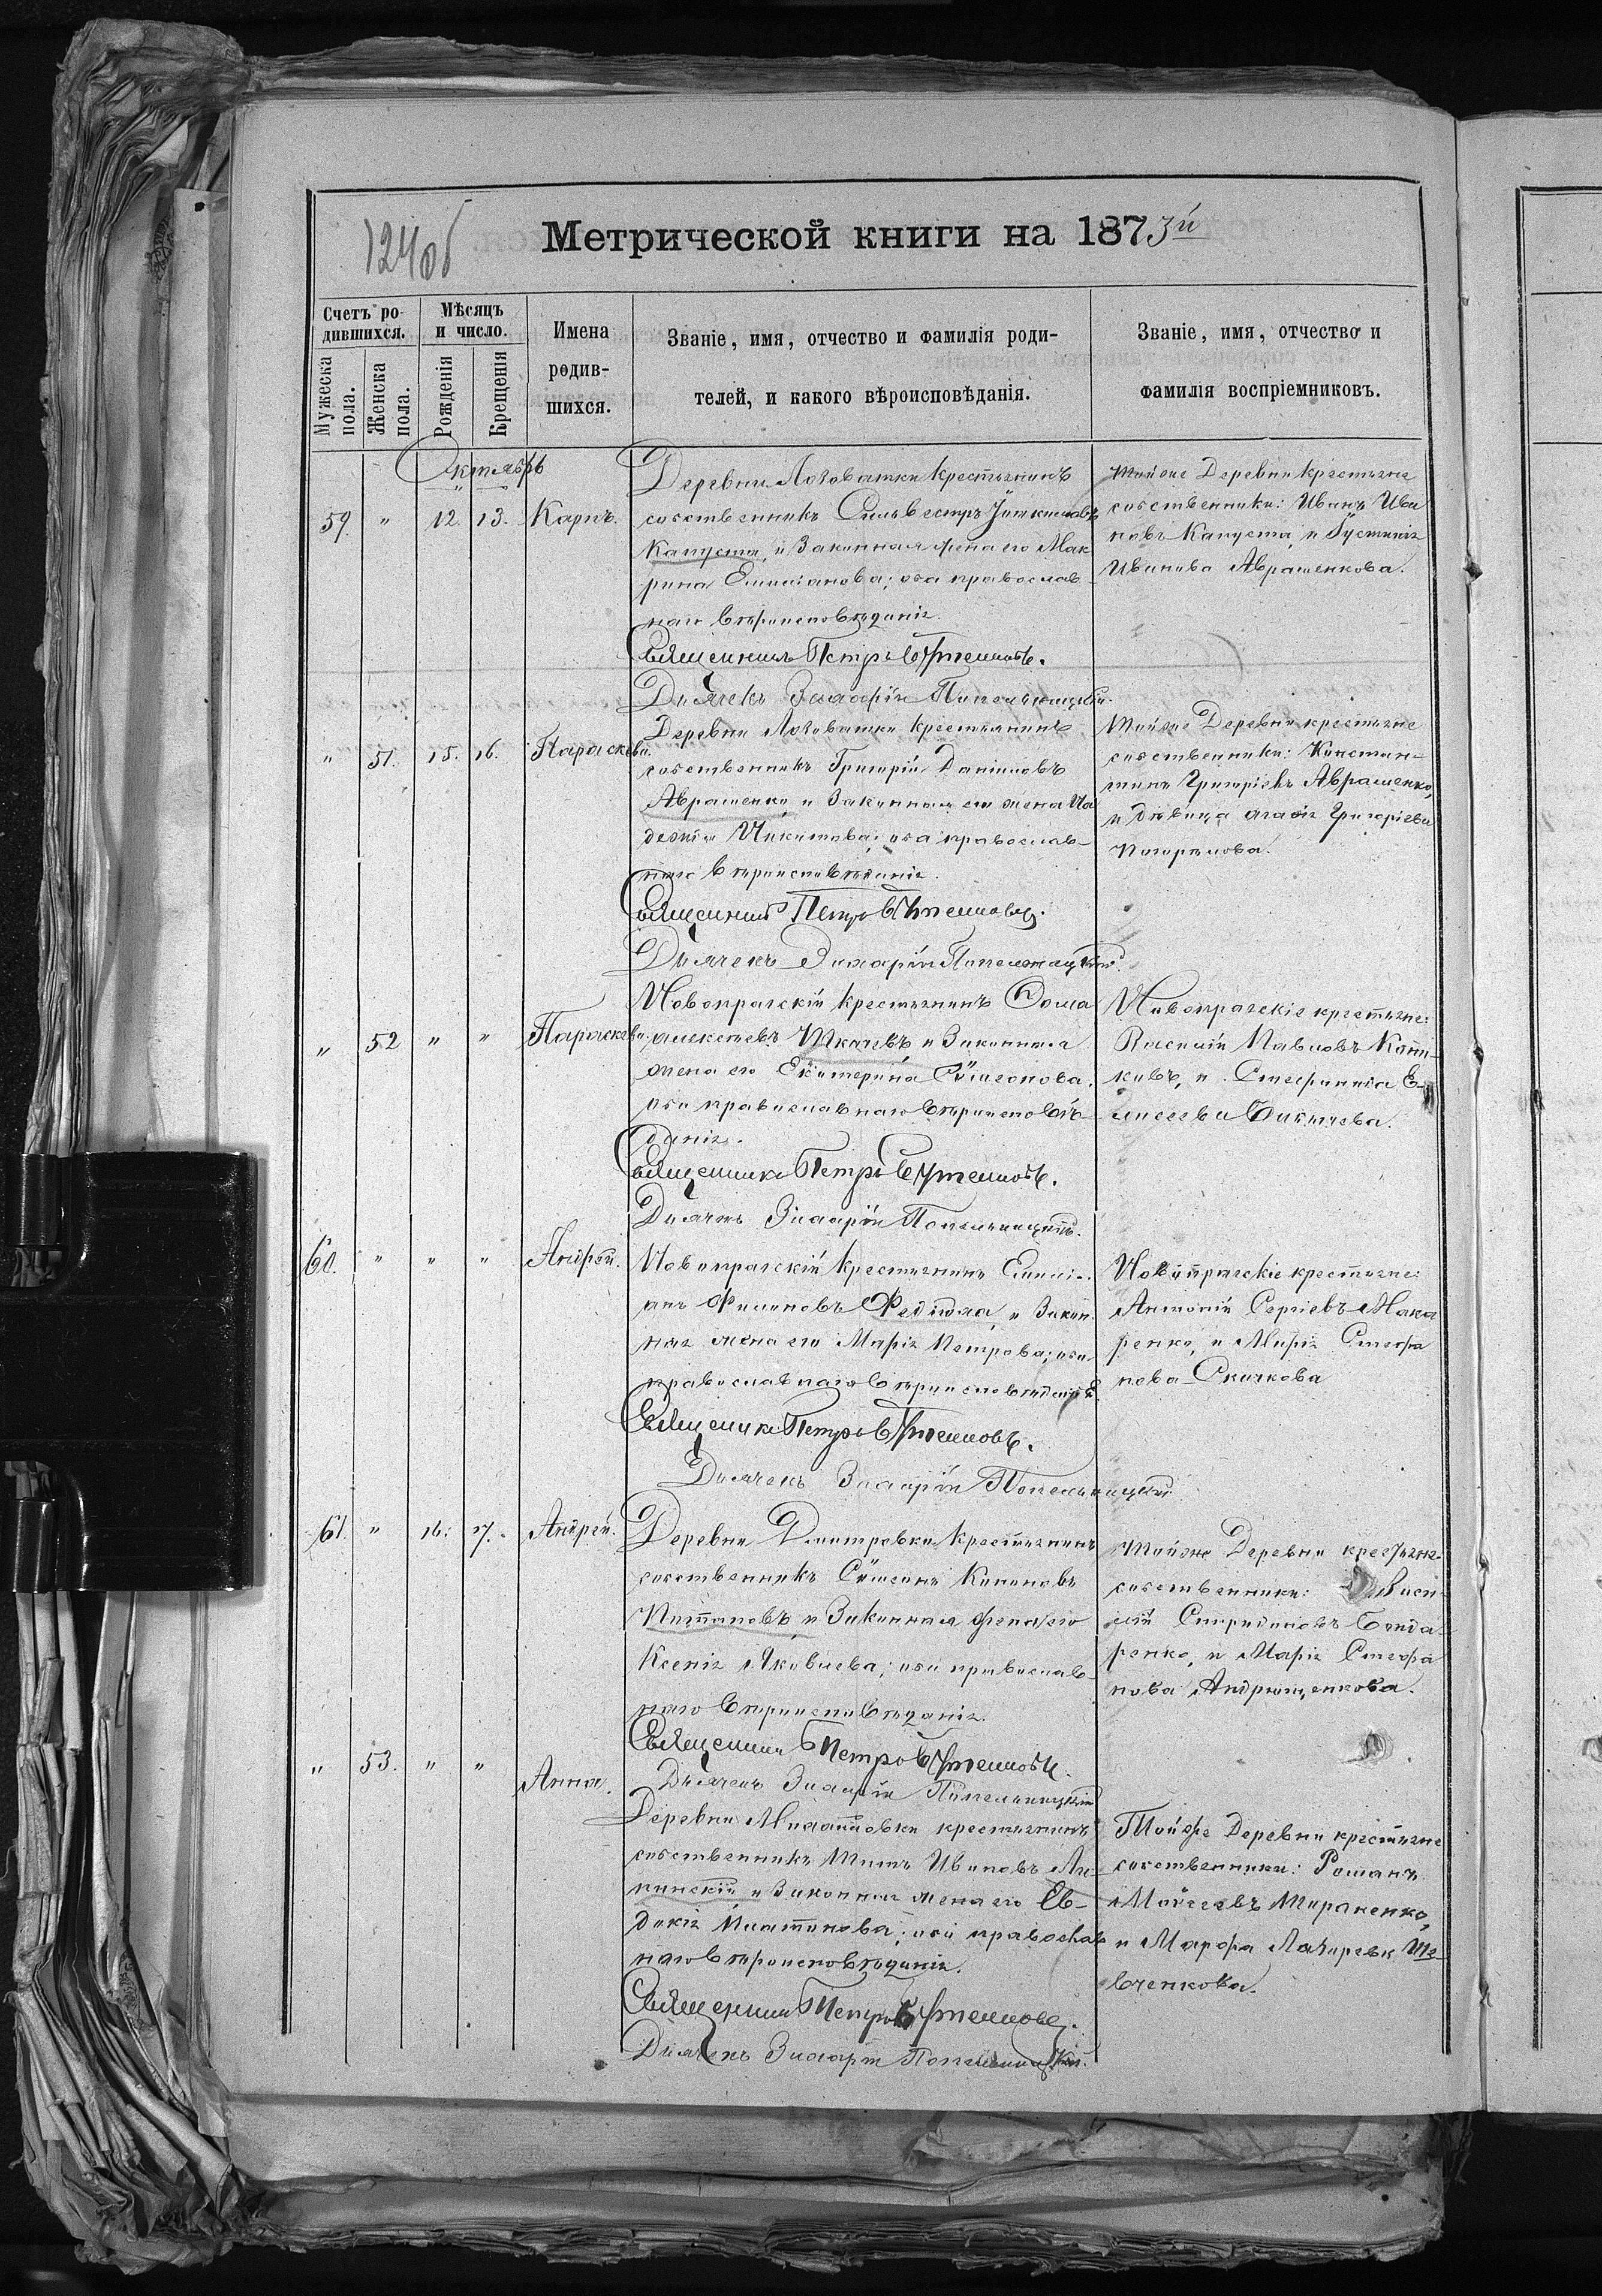 124об
Метрической книги на 1873й
Счетъ ро-
дившихся.
Мужеска
пола.
Женска
пола.
Мѣсяцъ
и число.
Рожденія
Крещенія
Имена
родив-
шихся.
Званіе, имя, отчество и фамилія роди-
телей, и какого вѣроисповѣданія.
Званіе, имя, отчество и
фамилія воспріемниковъ.
Октябрь
59. " 12. 13. Карпъ.
Деревни Лозоватки крестьянинъ
собственникъ Сильвестръ
Капуста, и законная жена его Мак
рина Емиліанова; оба православ-
наго вѣроисповѣданія.
Священникъ Петръ
Дьячекъ
тойже Деревни крестьяне
собственники: Иванъ Ива
новъ Капуста, и Іустинія
Иванова Аврашенкова.
" 51. 15. 16. Параскева.
Деревни Лозоватки крестьянинъ
собственникъ Григорій Даніиловъ
Аврашенко, и законная его жена На
дежда Никитова; оба православ-
наго вѣроисповѣданія.
Священникъ Петръ
Дьячекъ
тойже Деревни крестьяне
собственники: Констан-
тинъ Григорьевъ Аврашенко,
и дѣвица Агафія Григоріева
" 52 " " Параскева.
Новопражскій крестьянинъ Ѳома
Алексѣевъ и законная
жена его Екатерина Сѵмеонова.
оба православнаго вѣроисповѣ-
данія.
Священникъ Петръ
Дьячекъ
Новопражскіе крестьяне:
Василій Павловъ
и Стефанида Е-
лисеева
60. " " " Андрей.
Новопражскій крестьянинъ Емилі-
анъ Филиповъ и закон
ная жена его Марія Петрова; оба
православнаго вѣроисповѣданія.
Священникъ Петръ
Дьячекъ
Новопражскіе крестьяне:
Антоній Сергіевъ Мака
ренко, и Марія Стефа
нова Скичкова
61. " 16. 17. Андрей.
Деревни Дмитровки крестьянинъ
собственникъ Сѵмеонъ Кононовъ
и законная жена его
Ксенія Яковлева; оба православ-
наго вѣроисповѣданія.
Священникъ Петръ
Дьячекъ
тойже Деревни крестьяне
собственники: Васи
лій Спиридоновъ Бонда
ренко, и Марія Стефа
нова Андрющенкова.
" 53. " " Анна.
Деревни крестьянинъ
собственникъ Титъ Ивановъ
и законная жена его Ев-
докія Платонова; оба православ
наго вѣроисповѣданія.
Священникъ Петръ
Дьячекъ
Тойже Деревни крестьяне
собственники: Романъ
Моѵсеевъ
и Марфа Лазарева Ше-
вченкова.